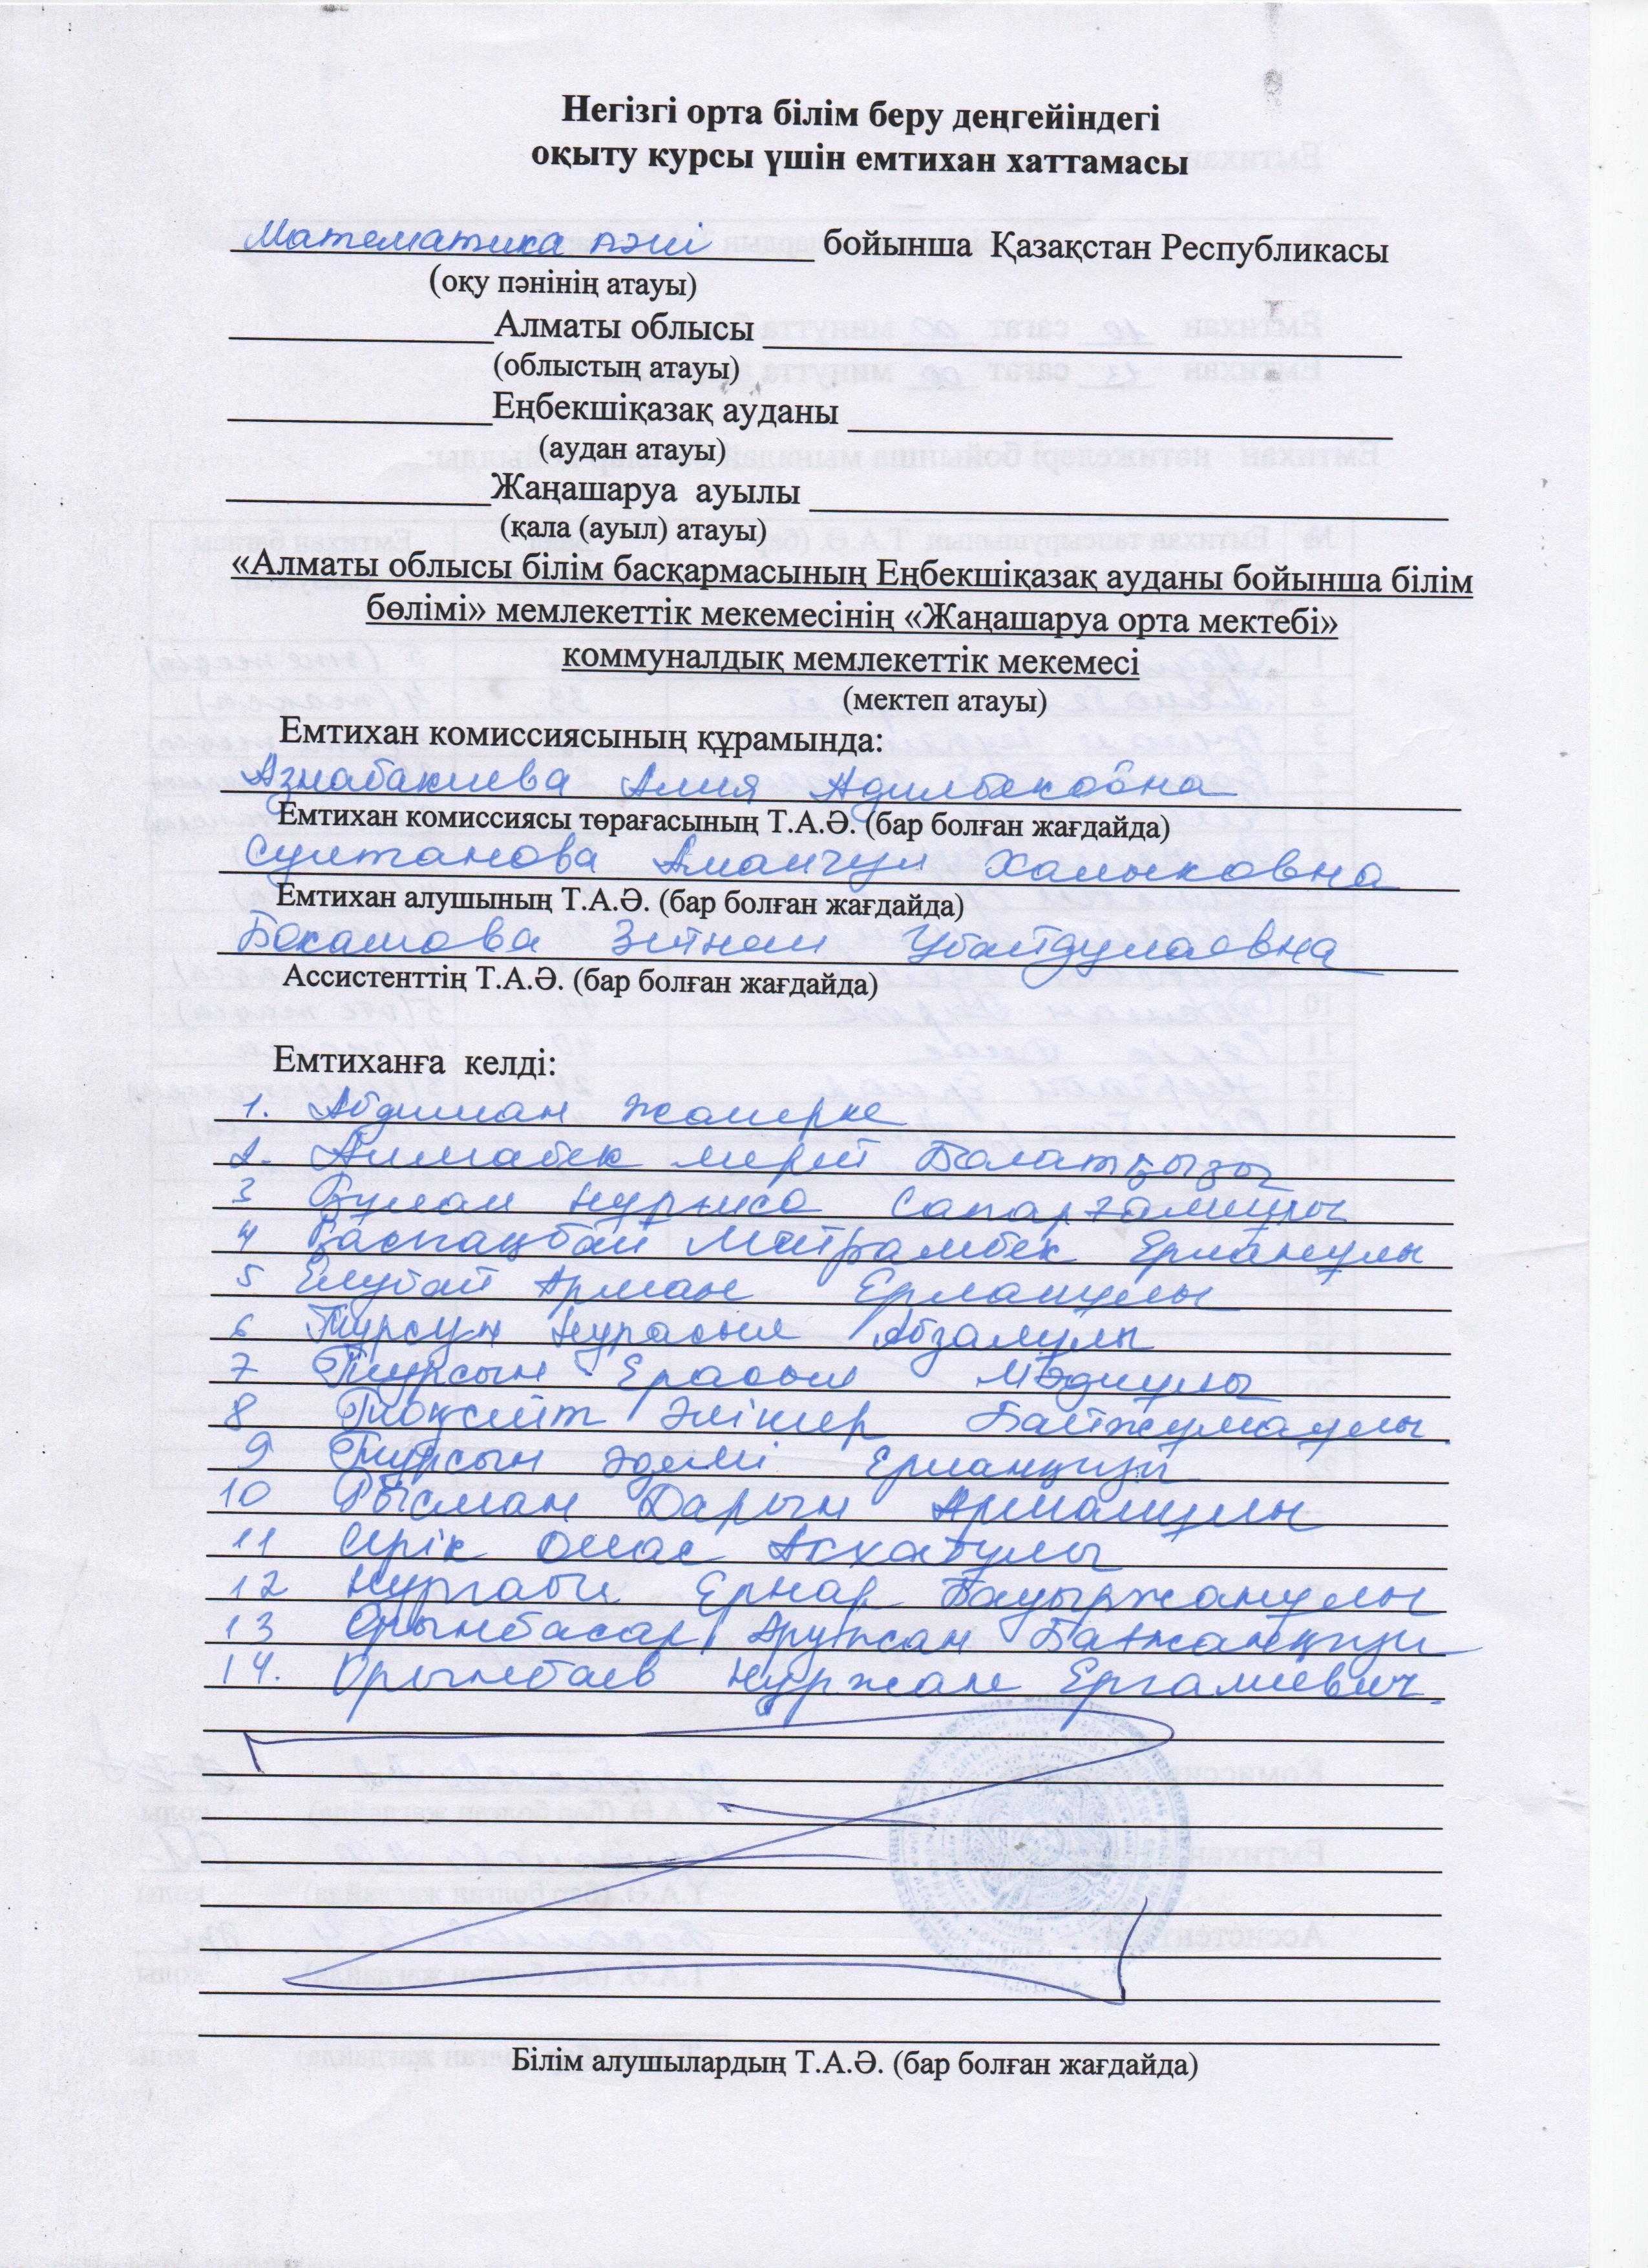 Негізгі орта білім беру деңгейіндегі
оқыту курсы үшін емтихан хаттамасы
Математика пәні бойынша Қазақстан Республикасы
(оқу пәнінің атауы)
Алматы облысы
(облыстың атауы)
Еңбекшіқазақ ауданы
(аудан атауы)
Жаңашаруа ауылы
(қала (ауыл) атауы)
«Алматы облысы білім басқармасының Еңбекшіқазақ ауданы бойынша білім
бөлімі» мемлекеттік мекемесінің «Жаңашаруа орта мектебі»
коммуналдық мемлекеттік мекемесі
(мектеп атауы)
Емтихан комиссиясының құрамында:
Азнабакиева Алия Адилбековна
Емтихан комиссиясы төрағасының Т.А.Ә. (бар болған жағдайда)
Султанова Амангул Халыковна
Емтихан алушының Т.А.Ә. (бар болған жағдайда)
Бокашова Зейнеш Убайдулаевна
Ассистенттің Т.А.Ә. (бар болған жағдайда)
Емтиханға келді:
1. Абдиман Жанерке
2. Алмабек Мерей Болатқызы
3 Нуриса
4 Ерланұлы
5 Елубай Арман Ерланұлы
6 Турсун Нурасыл Абзалұлы
7 Тұрсын Ерасыл Мәдиұлы
8 Тоқсейт Әлішер Байжұмаұлы.
9 Тұрсын Әдемі Ерланқызы
10 Рысман Дарын Арманұлы
11 Серік Олжас Асхатұлы
12 Нургали Ернар Бауыржанұлы
13 Орынбасар Аружан
14. Орынбаев Нуржан Ергалиевич.
Білім алушылардың Т.А.Ә. (бар болған жағдайда)